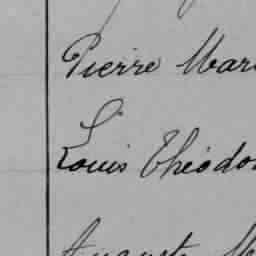 Pierre Mar
Louis Théodo
August